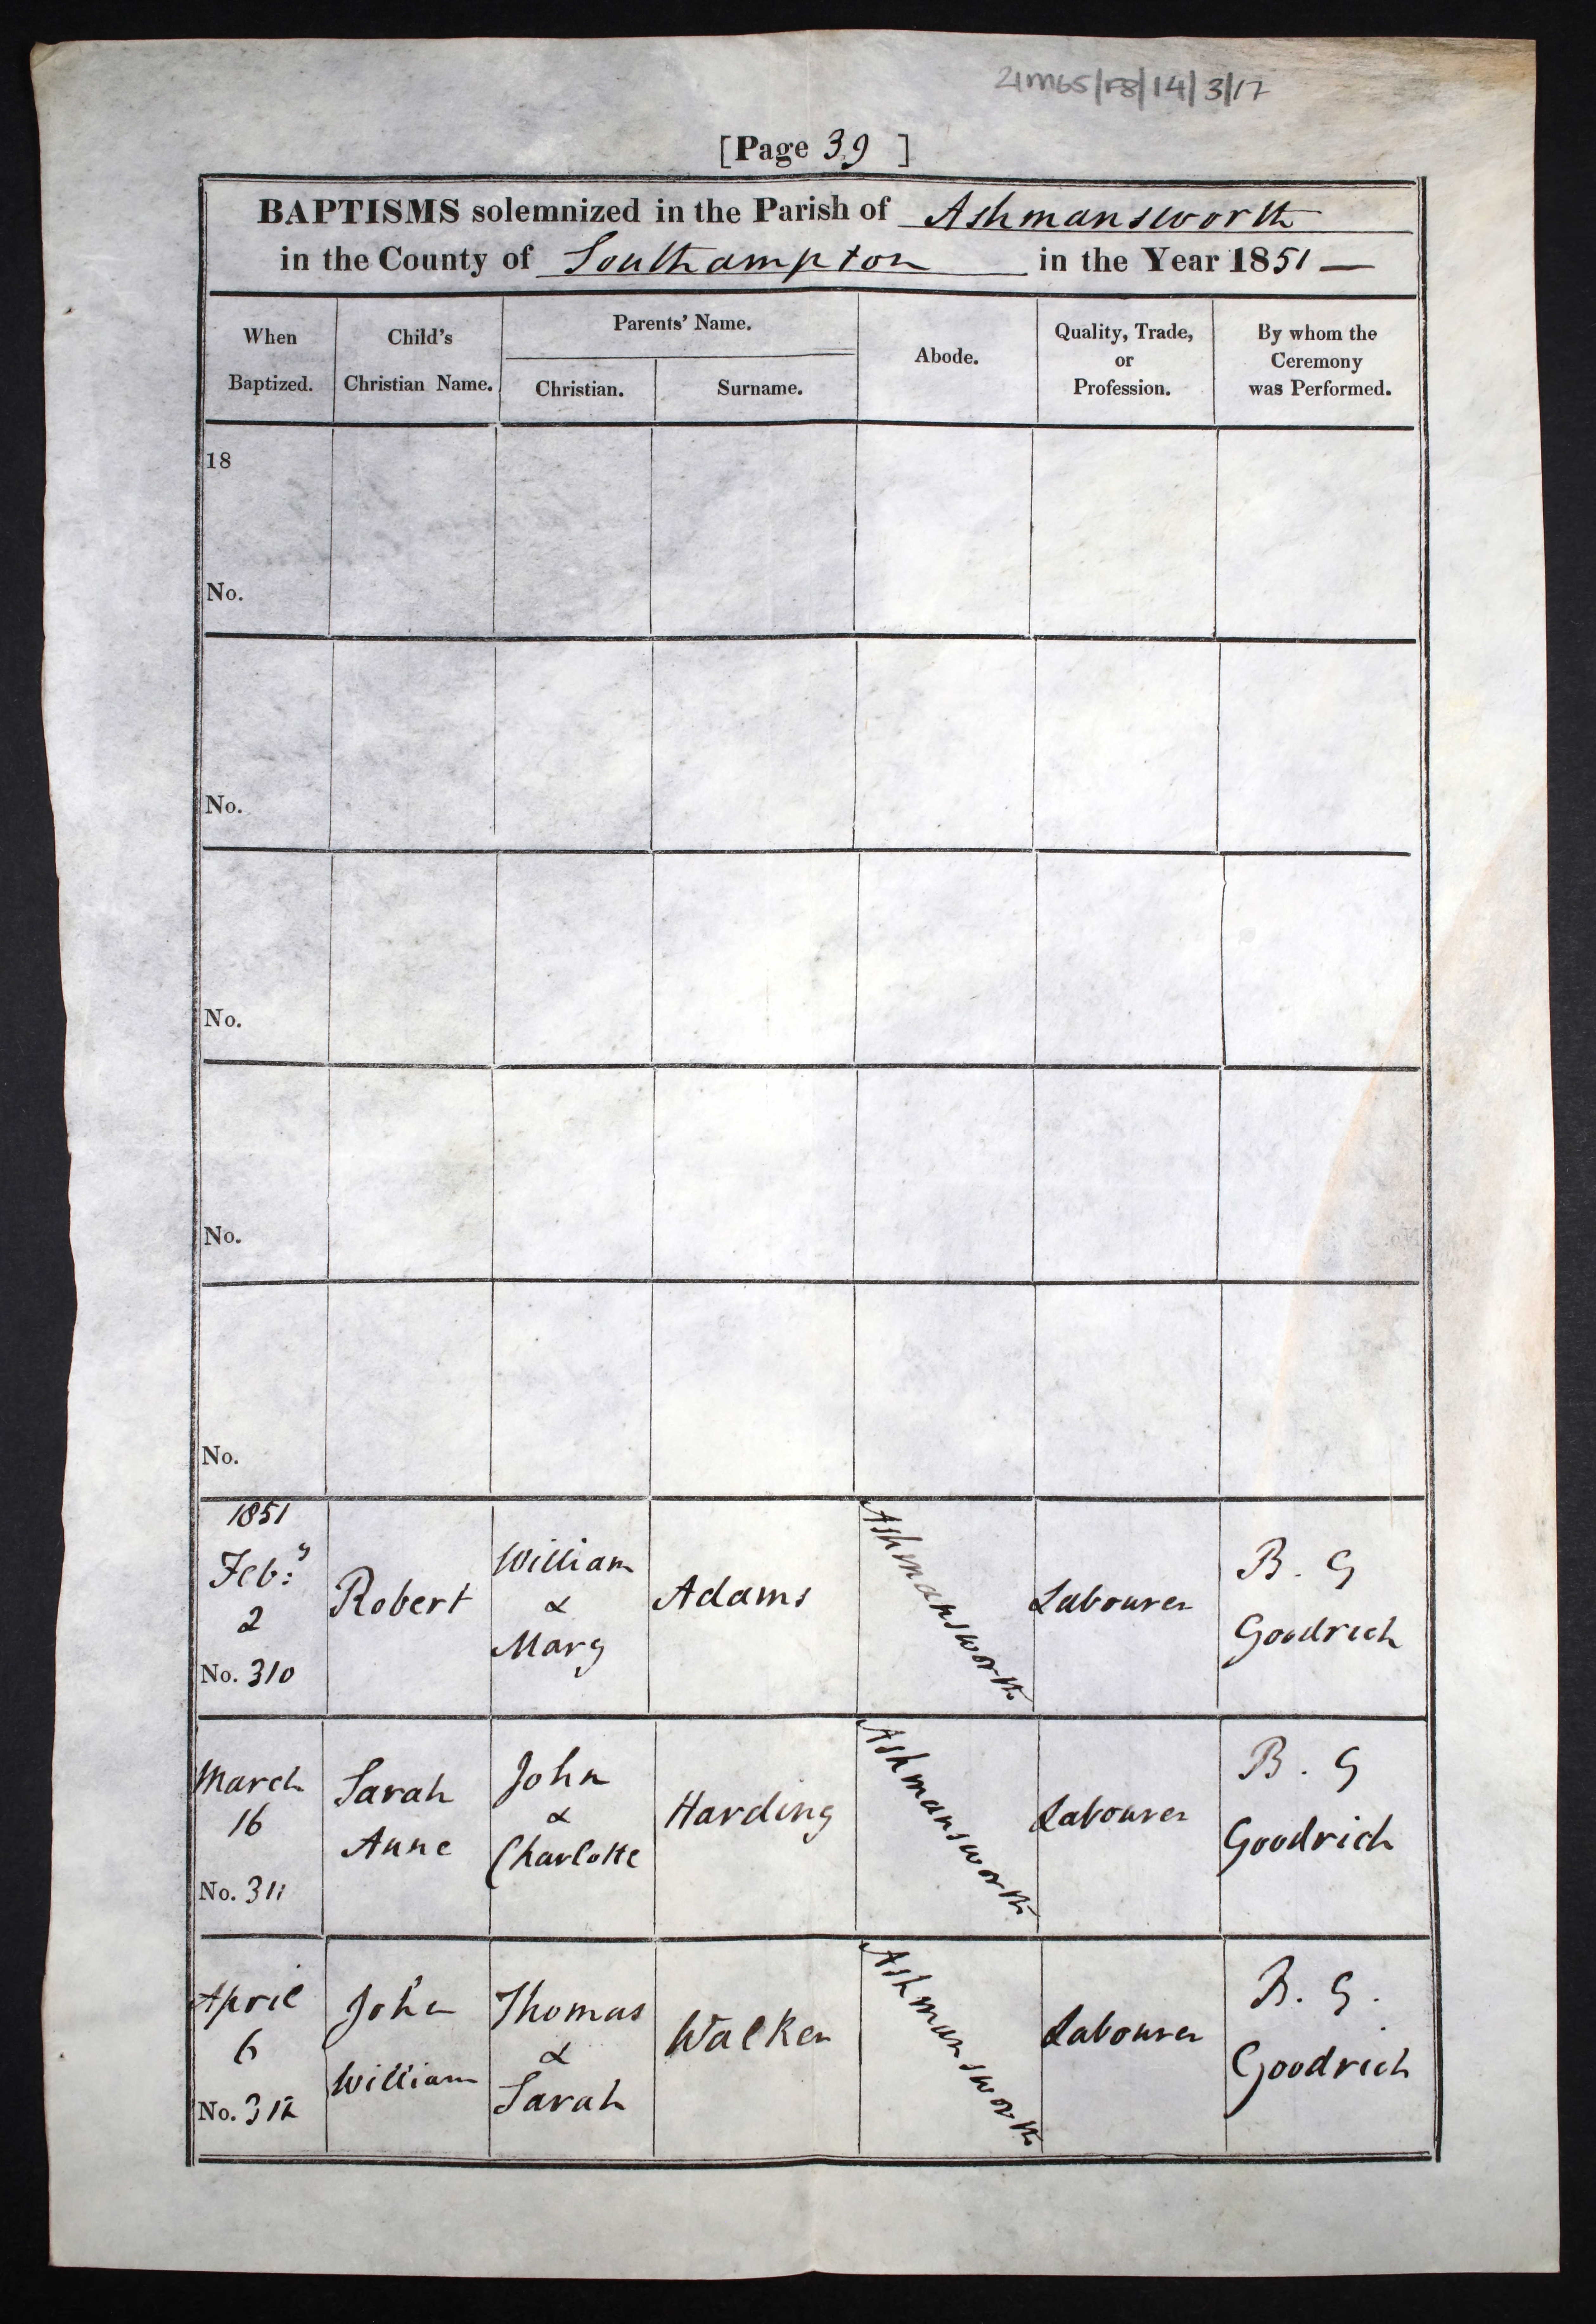 21M65/F8/14/3/17
[Page 39 ]
BAPTISMS solemnized in the Parish of Ashmansworth
in the County of Southampton in the Year 1851 —
When
Baptized.
Child's
Christian Name.
Parents' Name.
Christian.
Surname.
Abode.
Quality, Trade,
or
Profession.
By whom the
Ceremony
was Performed.
18
No.
No.
No.
No.
No.
1851
Feb:y
2
No. 310
Robert
William
&
Mary
Adams
Ashmansworth
Labourer
B. G
Goodrich
March
16
No. 311
Sarah
Anne
John
&
Charlotte
Harding
Ashmansworth
Labourer
B. G
Goodrich
April
6
No. 312
John
William
Thomas
&
Sarah
Walker
Ashmansworth
Labourer
B. G.
Goodrich